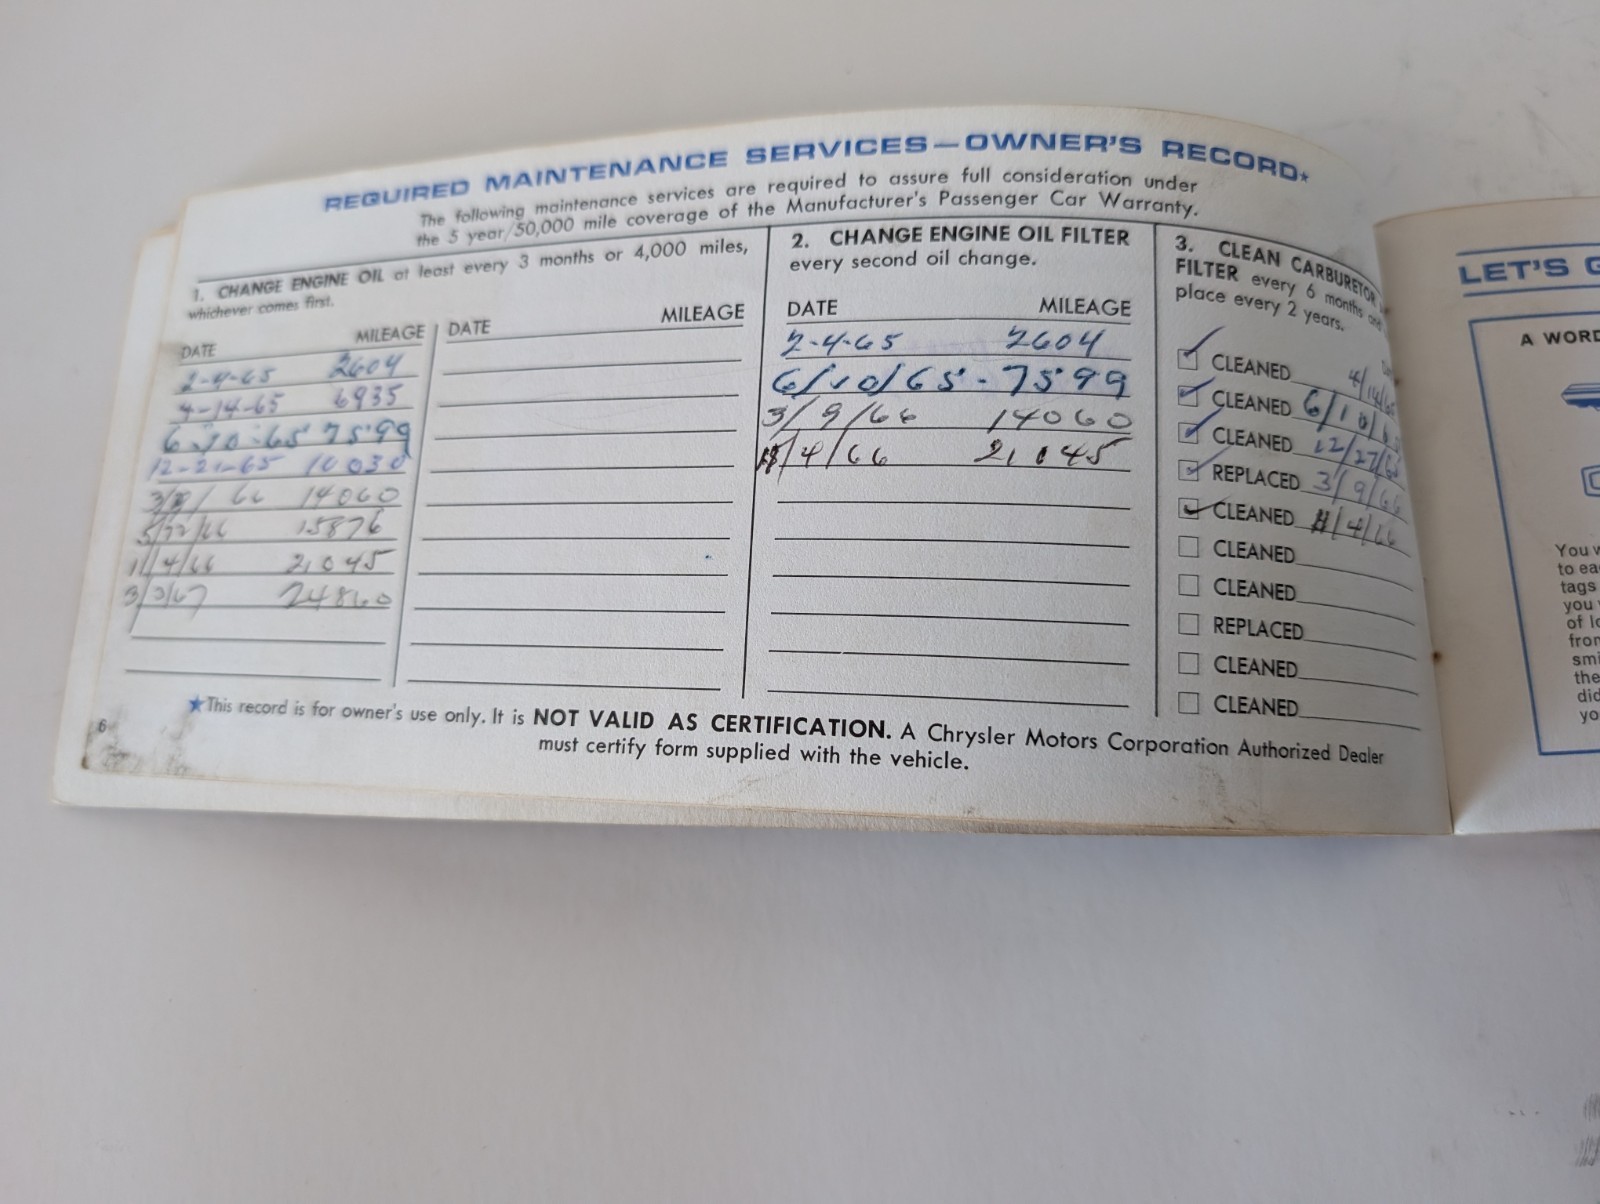 REQUIRED MAINTENANCE SERVICES—OWNER'S RECORD★
The following maintenance services are required to assure full consideration under
the 5 year/50,000 mile coverage of the Manufacturer's Passenger Car Warranty.
1. CHANGE ENGINE OIL at least every 3 months or 4,000 miles,
whichever comes first.
DATE MILEAGE DATE MILEAGE
2-4-65 2604
4-14-65 6935
6-10-65 7599
12-21-65 10030
3/8/66 14060
5/22/66 15876
11/4/66 21045
3/3/67 24860
2. CHANGE ENGINE OIL FILTER
every second oil change.
DATE MILEAGE
2-4-65 2604
6/10/65 - 7599
3/9/66 14060
11/4/66 21045
3. CLEAN CARBURETOR
FILTER every 6 months and
place every 2 years.
CLEANED 4/14/65
CLEANED 6/10/65
CLEANED 12/27/65
REPLACED 3/9/66
CLEANED 11/4/66
CLEANED
CLEANED
REPLACED
CLEANED
CLEANED
★This record is for owner's use only. It is NOT VALID AS CERTIFICATION. A Chrysler Motors Corporation Authorized Dealer
must certify form supplied with the vehicle.
6
LET'S G
A WORD
You w
to ea
tags
you
of lo
from
smi
the
did
yo